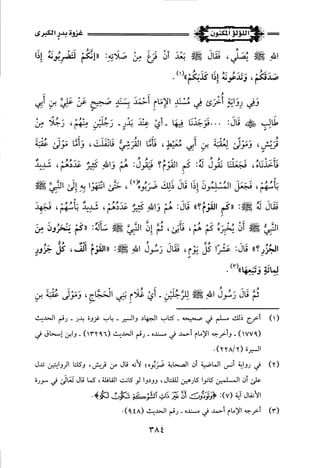 غزوة بدر الكبرى
اللؤلؤ المكنون
الله ﷺ يُصَلِّي، فَقَالَ ﷺ بَعْدَ أَنْ فَرَغَ مِنْ صَلَاتِهِ: «إِنَّكُمْ لَتَضْرِبُونَهُ إِذَا
صَدَقَكُمْ، وَتَدَعُونَهُ إِذَا كَذَبَكُمْ»(١).
وَفِي رِوَايَةٍ أُخْرَى فِي مُسْنَدِ الإِمَامِ أَحْمَدَ بِسَنَدٍ صَحِيحٍ عَنْ عَلِيِّ بنِ أَبِي
طَالِبٍ ﷺ قَالَ: ...فَوَجَدْنَا فِيهَا -أَيْ عِنْدَ بَدْرٍ- رَجُلَيْنِ مِنْهُمْ، رَجُلًا مِنْ
قُرَيْشٍ، وَمَوْلًى لِعُقْبَةَ بنِ أَبِي مُعَيْطٍ، فَأَمَّا القُرَشِيُّ فَانْفَلَتَ، وَأَمَّا مَوْلَى عُقْبَةَ
فَأَخَذْنَاهُ، فَجَعَلْنَا نَقُولُ لَهُ: كَمِ القَوْمُ؟ فَيَقُولُ: هُمْ وَاللهِ كَثِيرٌ عَدَدُهُمْ، شَدِيدٌ
بَأْسُهُمْ، فَجَعَلَ المُسْلِمُونَ إِذَا قَالَ ذَلِكَ ضَرَبُوهُ(٢)، حَتَّى انْتَهَوْا بِهِ إِلَى النَّبِيِّ ﷺ
فَقَالَ لَهُ ﷺ: «كَمِ القَوْمُ؟» قَالَ: هُمْ وَاللهِ كَثِيرٌ عَدَدُهُمْ، شَدِيدٌ بَأْسُهُمْ، فَجَهَدَ
النَّبِيُّ ﷺ أَنْ يُخْبِرَهُ كَمْ هُمْ، فَأَبَى، ثُمَّ إِنَّ النَّبِيَّ ﷺ سَأَلَهُ: «كَمْ يَنْحَرُونَ مِنَ
الجُزُرِ؟» قَالَ: عَشْرًا كُلَّ يَوْمٍ، فَقَالَ رَسُولُ اللهِ ﷺ: «القَوْمُ أَلْفٌ، كُلُّ جَزُورٍ
لِمِائَةٍ وَتَبَعِهَا»(٣).
ثُمَّ قَالَ رَسُولُ اللهِ ﷺ لِلرَّجُلَيْنِ - أَيْ غُلَامِ بَنِي الحَجَّاجِ، وَمَوْلَى عُقْبَةَ بنِ
(١) أخرج ذلك مسلم في صحيحه - كتاب الجهاد والسير - باب غزوة بدر - رقم الحديث
(١٧٧٩) - وأخرجه الإمام أحمد في مسنده - رقم الحديث (١٣٢٩٦) - وابن إسحاق في
السيرة (٢٢٨/٢).
(٢) في رواية أنس الماضية أن الصحابة ضَرَبُوه؛ لأنه قال من قريش، وكلتا الروايتين تدل
على أن المسلمين كانوا كارهين للقتال، وودوا لو كانت القافلة، كما قال تَعَالَى في سورة
الأنفال آية (٧): ﴿وَتَوَدُّونَ أَنَّ غَيْرَ ذَاتِ الشَّوْكَةِ تَكُونُ لَكُمْ﴾.
(٣) أخرجه الإمام أحمد في مسنده - رقم الحديث (٩٤٨).
٣٨٤